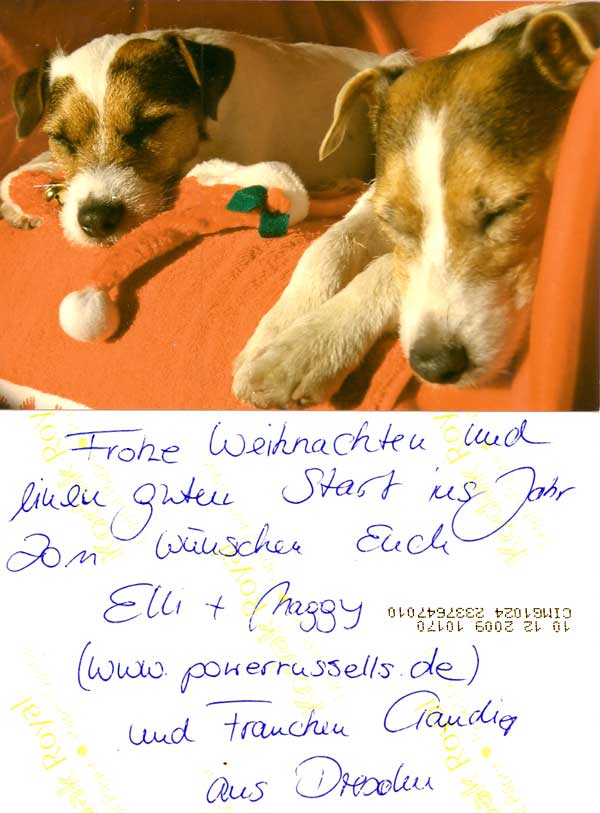 Frohe Weihnachten und
einen guten Start ins Jahr
2011 wünschen Euch
Elli + Maggy
10 12 2009 10170
CIMG1024 2337647010
(www.powerrussells.de)
und Frauchen Claudia
aus Dresden
Kodak Royal